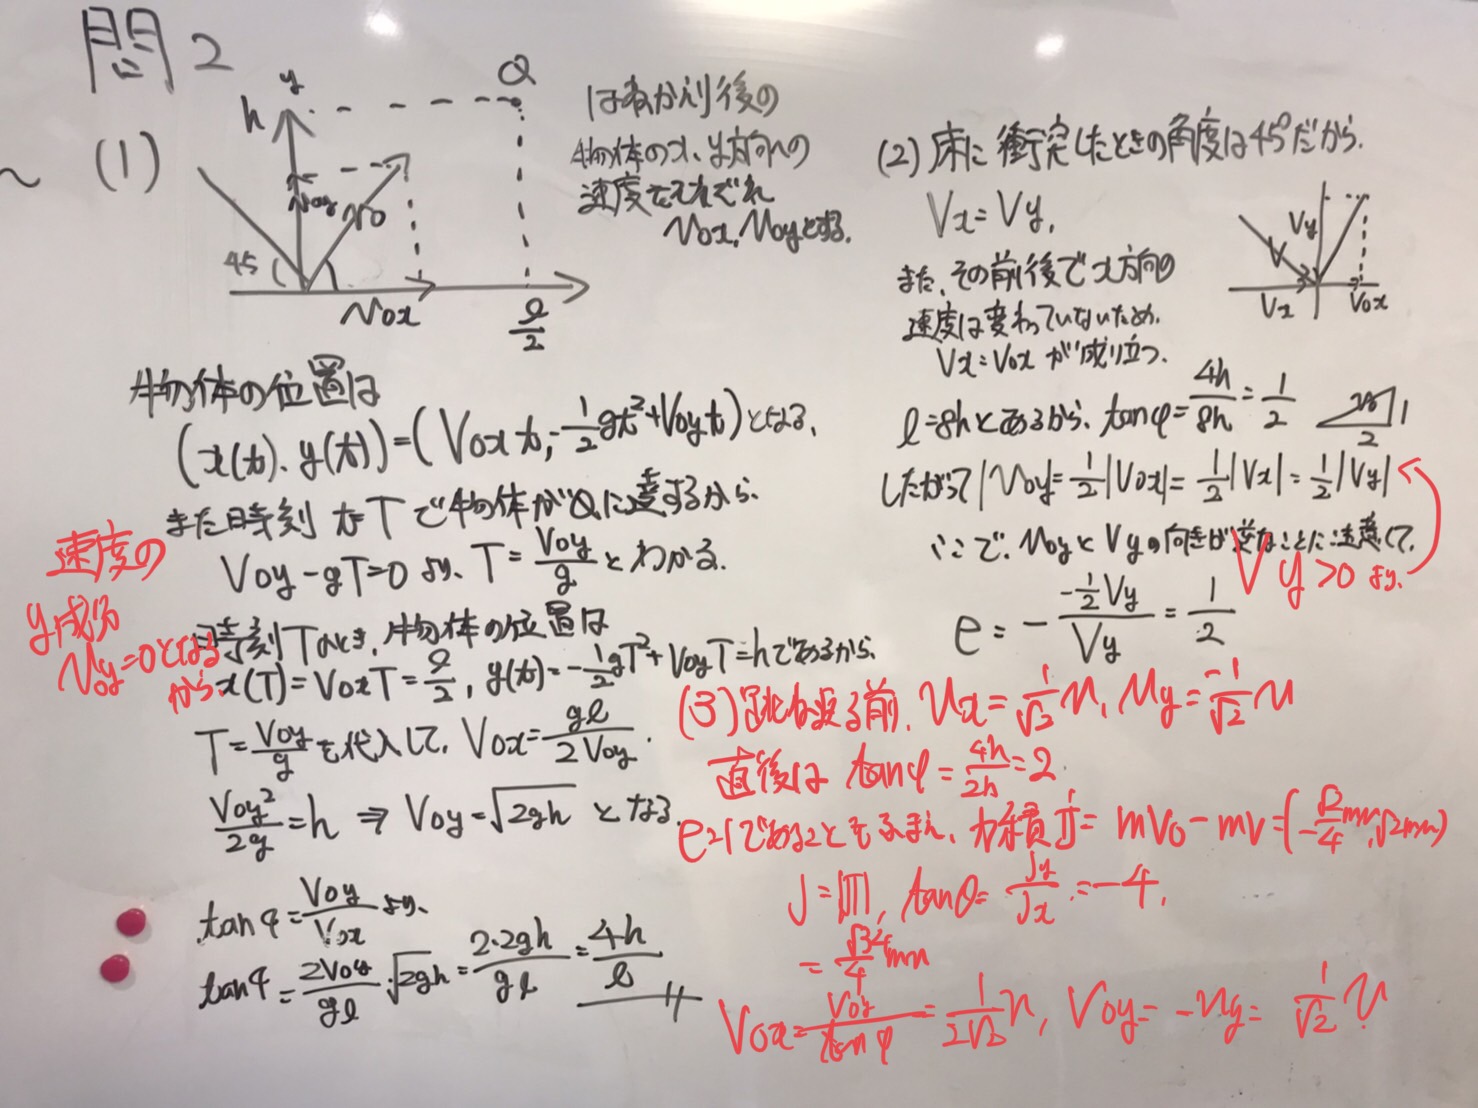 問2
(1)
y
h
Q
45
v0y v0
v0x
l/2
はねかえり後の
物体のx、y方向への
速度をそれぞれ
v0x, v0yとする。
物体の位置は
(x(t), y(t)) = (V0x t, -1/2 gt² + V0y t)となる。
また時刻 t=Tで物体がQに達するから、
V0y - gT = 0 より、T = V0y/g とわかる。
速度の
y成分
v0y=0となる
から
時刻Tのとき、物体の位置は
x(T) = V0xT = l/2, y(t) = -1/2 gT² + V0yT = hであるから、
T = V0y/g を代入して、V0x = gl/2V0y.
V0y²/2g = h ⇒ V0y = √2gh となる.
tanφ = V0y/V0x より、
tanφ = 2V0y/gl · √2gh = 2·2gh/gl = 4h/l
(2) 床に衝突したときの角度は45°だから、
Vx = Vy,
また、その前後でx方向の
速度は変わっていないため、
Vx = V0x が成り立つ.
Vy
V
Vx
V0x
l = 8hとあるから、tanφ = 4h/8h = 1/2
1
2
したがって |v0y| = 1/2|V0x| = 1/2|Vx| = 1/2|Vy|
ここで、v0yとVyの向きが逆なことに注意して、
Vy>0 より、
e = - (-1/2 Vy)/Vy = 1/2
(3) 跳ね返る前、
直後は tanφ = 4h/2h = 2
e=1であることもふまえ、力積J = mv0 - mv =
J = |J|, tanθ = Jy/Jx = -4,
= √34/4 mv
V0x = V0y/tanφ = 1/2√2 v, V0y = -vy = 1/√2 v